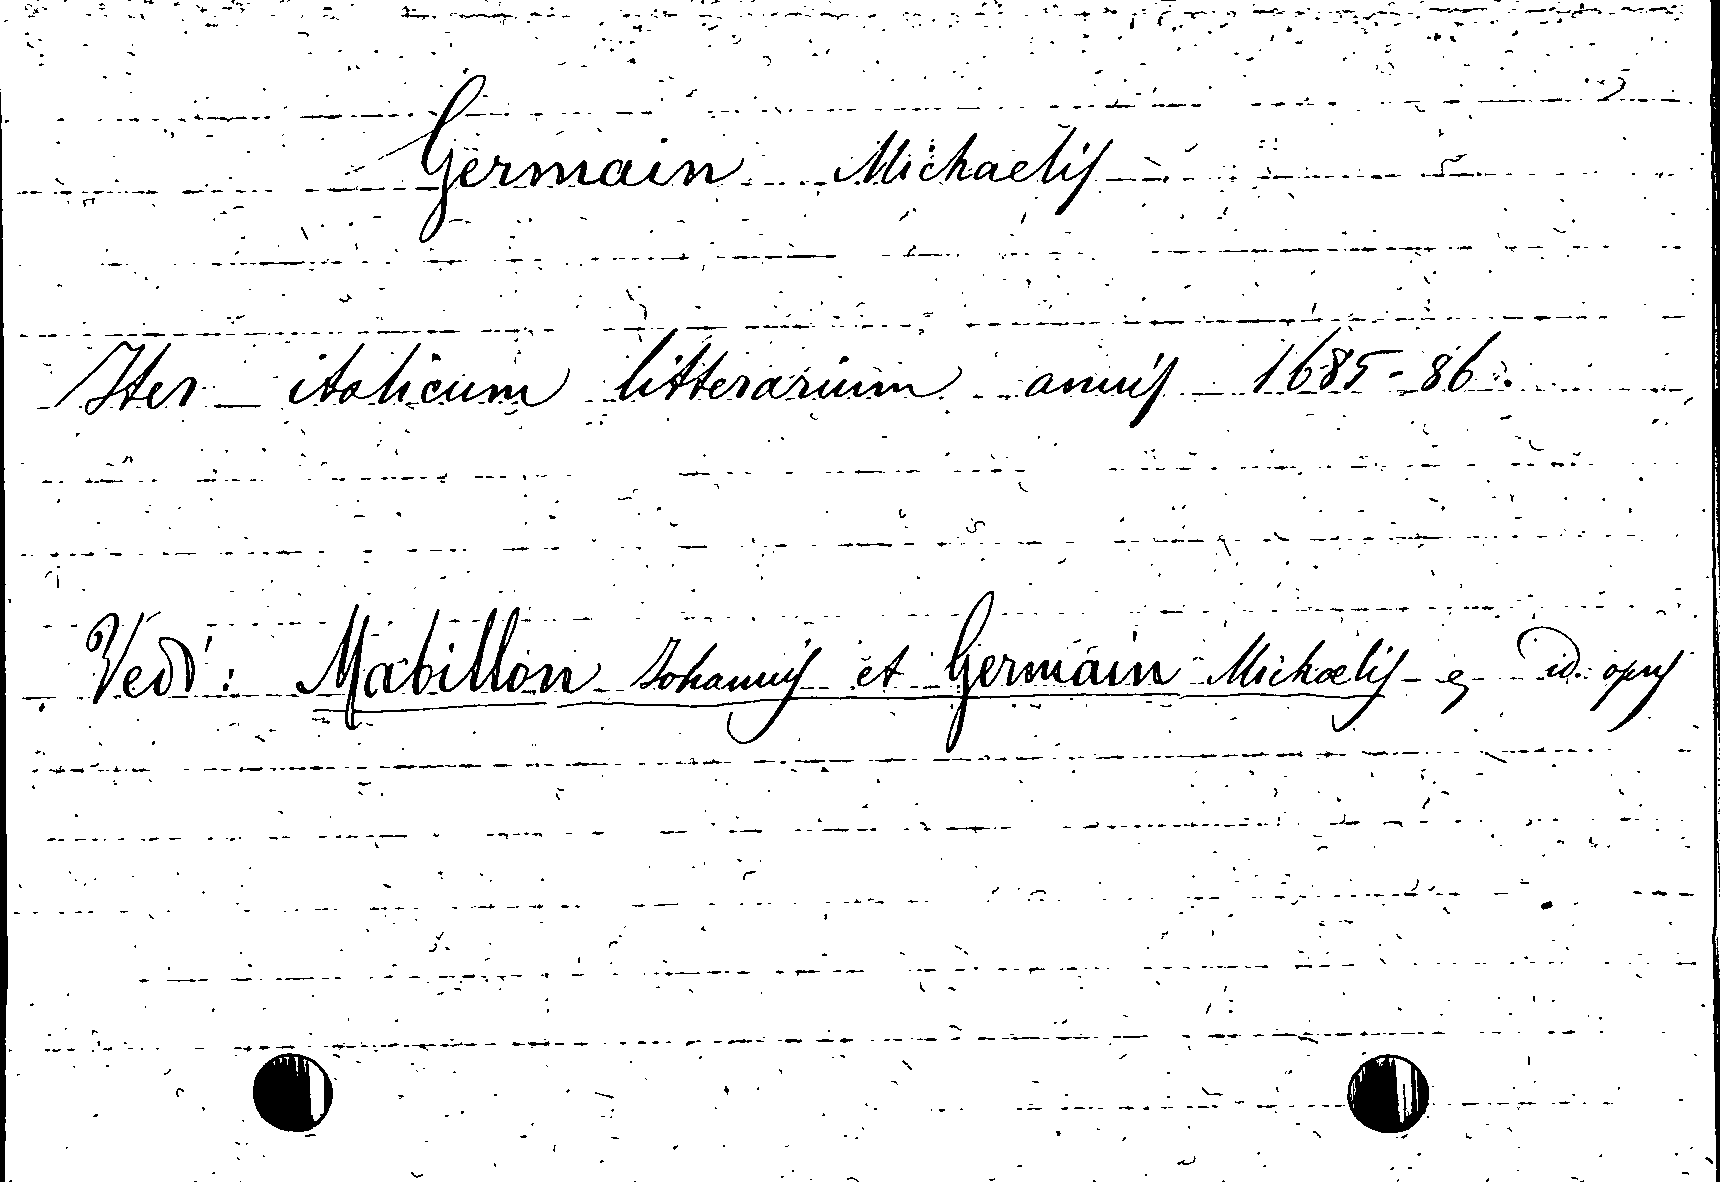 Germain Michaelis
Iter italicum litterarium annis 1685-86.
Vedi: Mabillon Johannis et Germain Michaelis e id. opus